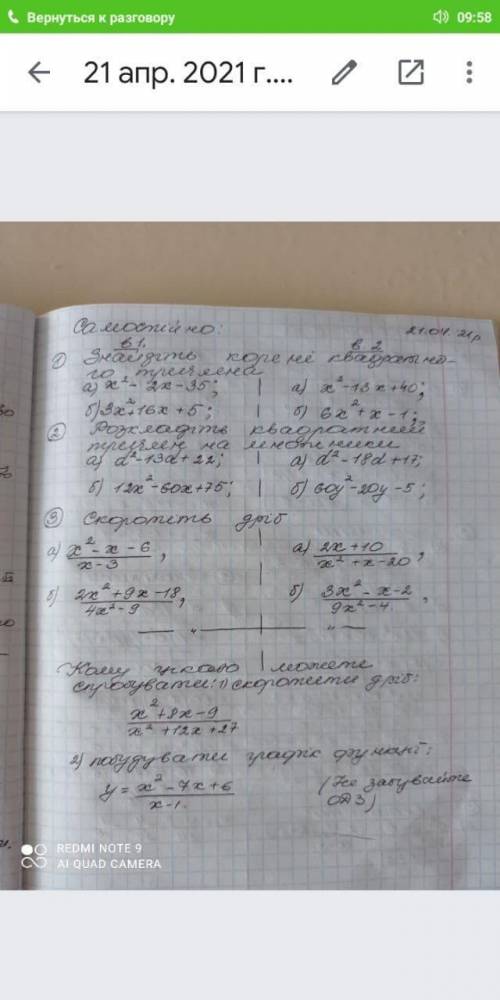 Вернуться к разговору 09:58
21 апр. 2021 г....
Самостійно: 21.04.21р
в1. в.2
① Знайдіть корені квадратно-
го тричлена
а) x²- 2x-35; а) x²-13x+40;
б) 3x²+16x+5; б) 6x²+x-1;
② Розкладіть квадратний
тричлен на множники
а) d²-13d+22; а) d²-18d+17;
б) 12x²-60x+75; б) 60y²-20y-5;
③ Скоротіть дріб
а) x²-x-6 / x-3, а) 2x+10 / x²+x-20,
б) 2x²+9x-18 / 4x²-9, б) 3x²-x-2 / 9x²-4.
Кому цікаво можете
спробувати: 1) скоротити дріб:
x²+8x-9 / x²+12x+27
2) побудувати графік функції:
y = x²-7x+6 / x-1. (Не забувайте
ОДЗ)
REDMI NOTE 9
AI QUAD CAMERA